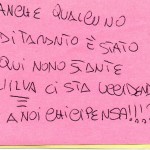 ANCHE QUALCUNO
DI TARANTO È STATO
QUI NONOSTANTE
L'ILVA CI STA UCCIDENDO
A NOI CHI CI PENSA!!!?